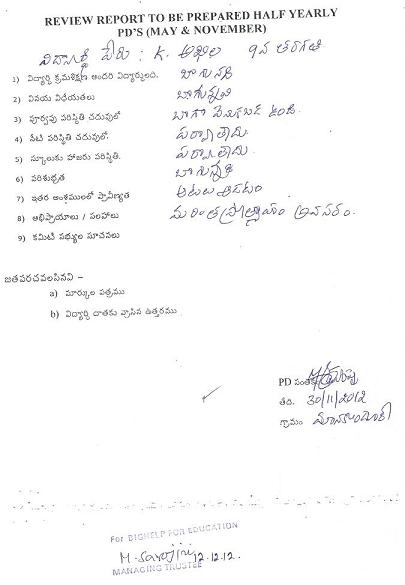 REVIEW REPORT TO BE PREPARED HALF YEARLY
PD'S (MAY & NOVEMBER)
విద్యార్థి పేరు : K. అఖిల 9వ తరగతి
1) విద్యార్థి క్రమశిక్షణ అందరి విద్యార్థులంది. బాగున్నది
2) వినయ విధేయతలు బాగున్నవి
3) పూర్వపు పరిస్థితి చదువులో బాగా వెనుకబడి ఉంది.
4) నేటి పరిస్థితి చదువులో. పర్వాలేదు
5) స్కూలుకు హాజరు పరిస్థితి. పర్వాలేదు
6) పరిశుభ్రత బాగున్నది
7) ఇతర అంశములలో ప్రావీణ్యత ఆటలు ఆడటం
8) అభిప్రాయాలు / సలహాలు మరింత ప్రోత్సాహం అవసరం.
9) కమిటి సభ్యుల సూచనలు
జతపరచవలసినవి –
a) మార్కుల పత్రము
b) విద్యార్థి దాతకు వ్రాసిన ఉత్తరము
PD సంతకం
తేది. 30/11/2012
గ్రామం
For BIGHELP FOR EDUCATION
M. Sarojini 12.12.12.
MANAGING TRUSTEE